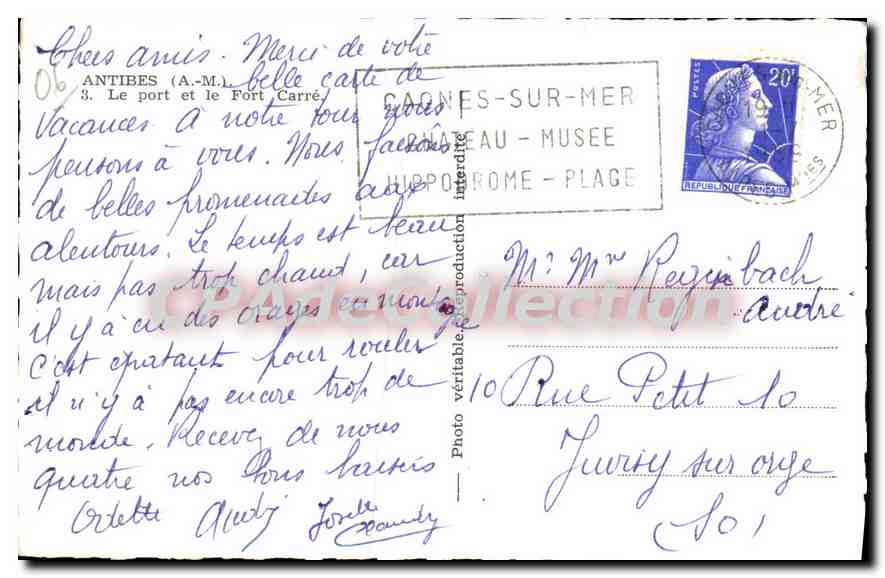 Chers amis. Merci de votre
ANTIBES (A.-M.)
belle carte de
3. Le port et le Fort Carré.
06
Vacances. A notre tour nous
pensons à vous. Nous faisons
de belles promenades aux
alentours. Le temps est beau
mais pas trop chaud, car
il y à eu des orages en montagne
C'est épatant pour rouler
il n'y à pas encore trop de
monde. Recevez de nous
quatre nos bons baisers
Odette André Josette
Photo véritable. Reproduction interdite
CAGNES-SUR-MER
CHÂTEAU - MUSEE
HIPPODROME - PLAGE
POSTES
20F
REPUBLIQUE FRANÇAISE
Mr Mme Reginbach
André
10 Rue Petit 10
Juvisy sur orge
(SO)
CPAdeCollection